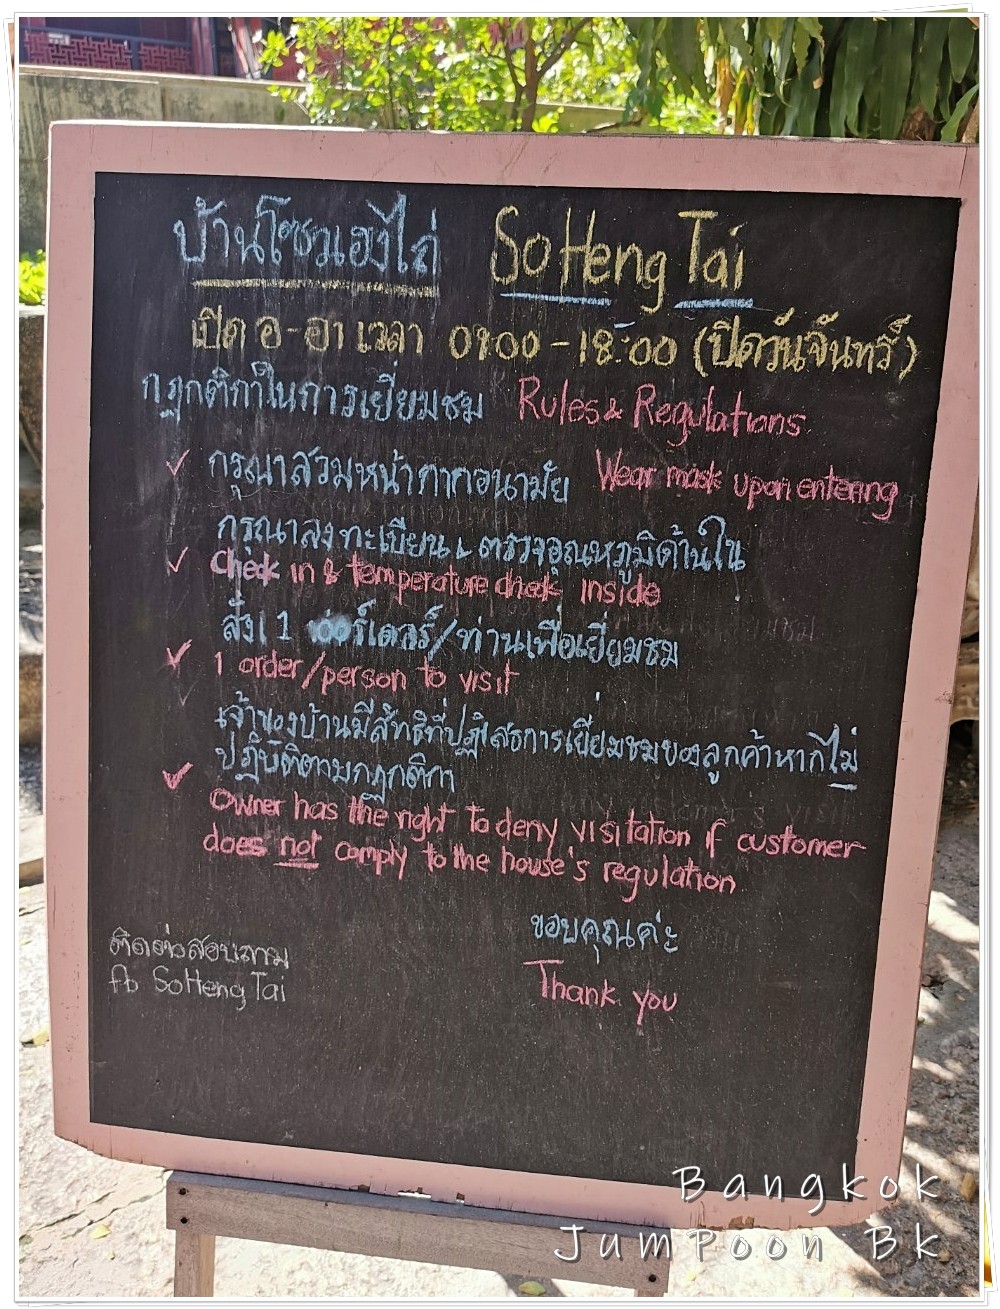 บ้านโซวเฮงไถ่ So Heng Tai
เปิด อ - อา เวลา 09:00 - 18:00 (ปิดวันจันทร์)
กฎกติกาในการเยี่ยมชม Rules & Regulations
กรุณาสวมหน้ากากอนามัย Wear mask upon entering
กรุณาลงทะเบียน & ตรวจอุณหภูมิด้านใน
Check in & temperature check inside
สั่ง 1 ออร์เดอร์/ท่านเพื่อเยี่ยมชม
1 order/person to visit
เจ้าของบ้านมีสิทธิที่ปฏิเสธการเยี่ยมชมของลูกค้าหากไม่
ปฏิบัติตามกฎกติกา
Owner has the right to deny visitation if customer
does not comply to the house's regulation
ขอบคุณค่ะ
Thank you
ติดต่อสอบถาม
fb SoHengTai
Bangkok
JumPoon Bk